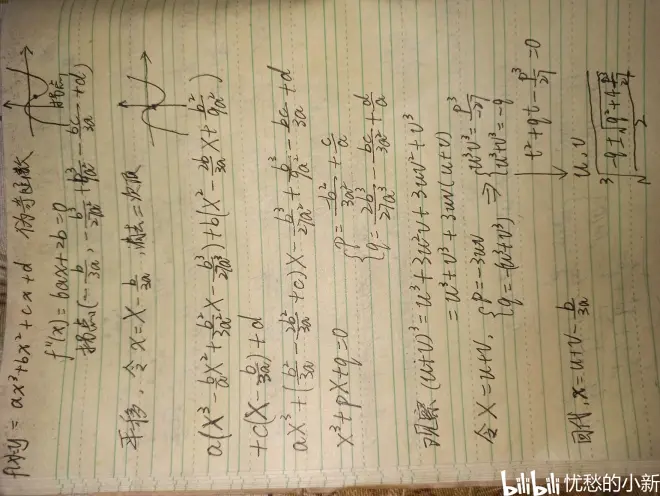 f(x)=y = ax³+bx²+cx+d
f''(x)=6ax+2b=0
拐点(-b/3a, -b³/27a² + b³/9a² - bc/3a + d)
拐点
平移，令 x = X - b/3a，消去二次项
a(X³ - b/a X² + b²/3a² X - b³/27a³) + b(X² - 2b/3a X + b²/9a²)
+ c(X - b/3a) + d
aX³ + (b²/3a - 2b²/3a + c)X - b³/27a² + b³/9a² - bc/3a + d
X³+pX+q=0 { p = -b²/3a² + c/a
q = 2b³/27a³ - bc/3a² + d/a
观察 (u+v)³ = u³+3u²v+3uv²+v³
= u³+v³+3uv(u+v)
令 X=u+v, { p=-3uv
q=-(u³+v³) ⇒ { u³v³ = -p³/27
u³+v³ = -q
t²+qt-p³/27=0
u,v
³√((-q±√(q²+4p³/27))/2)
回代, x = u+v - b/3a
bilibili 忧愁的小新